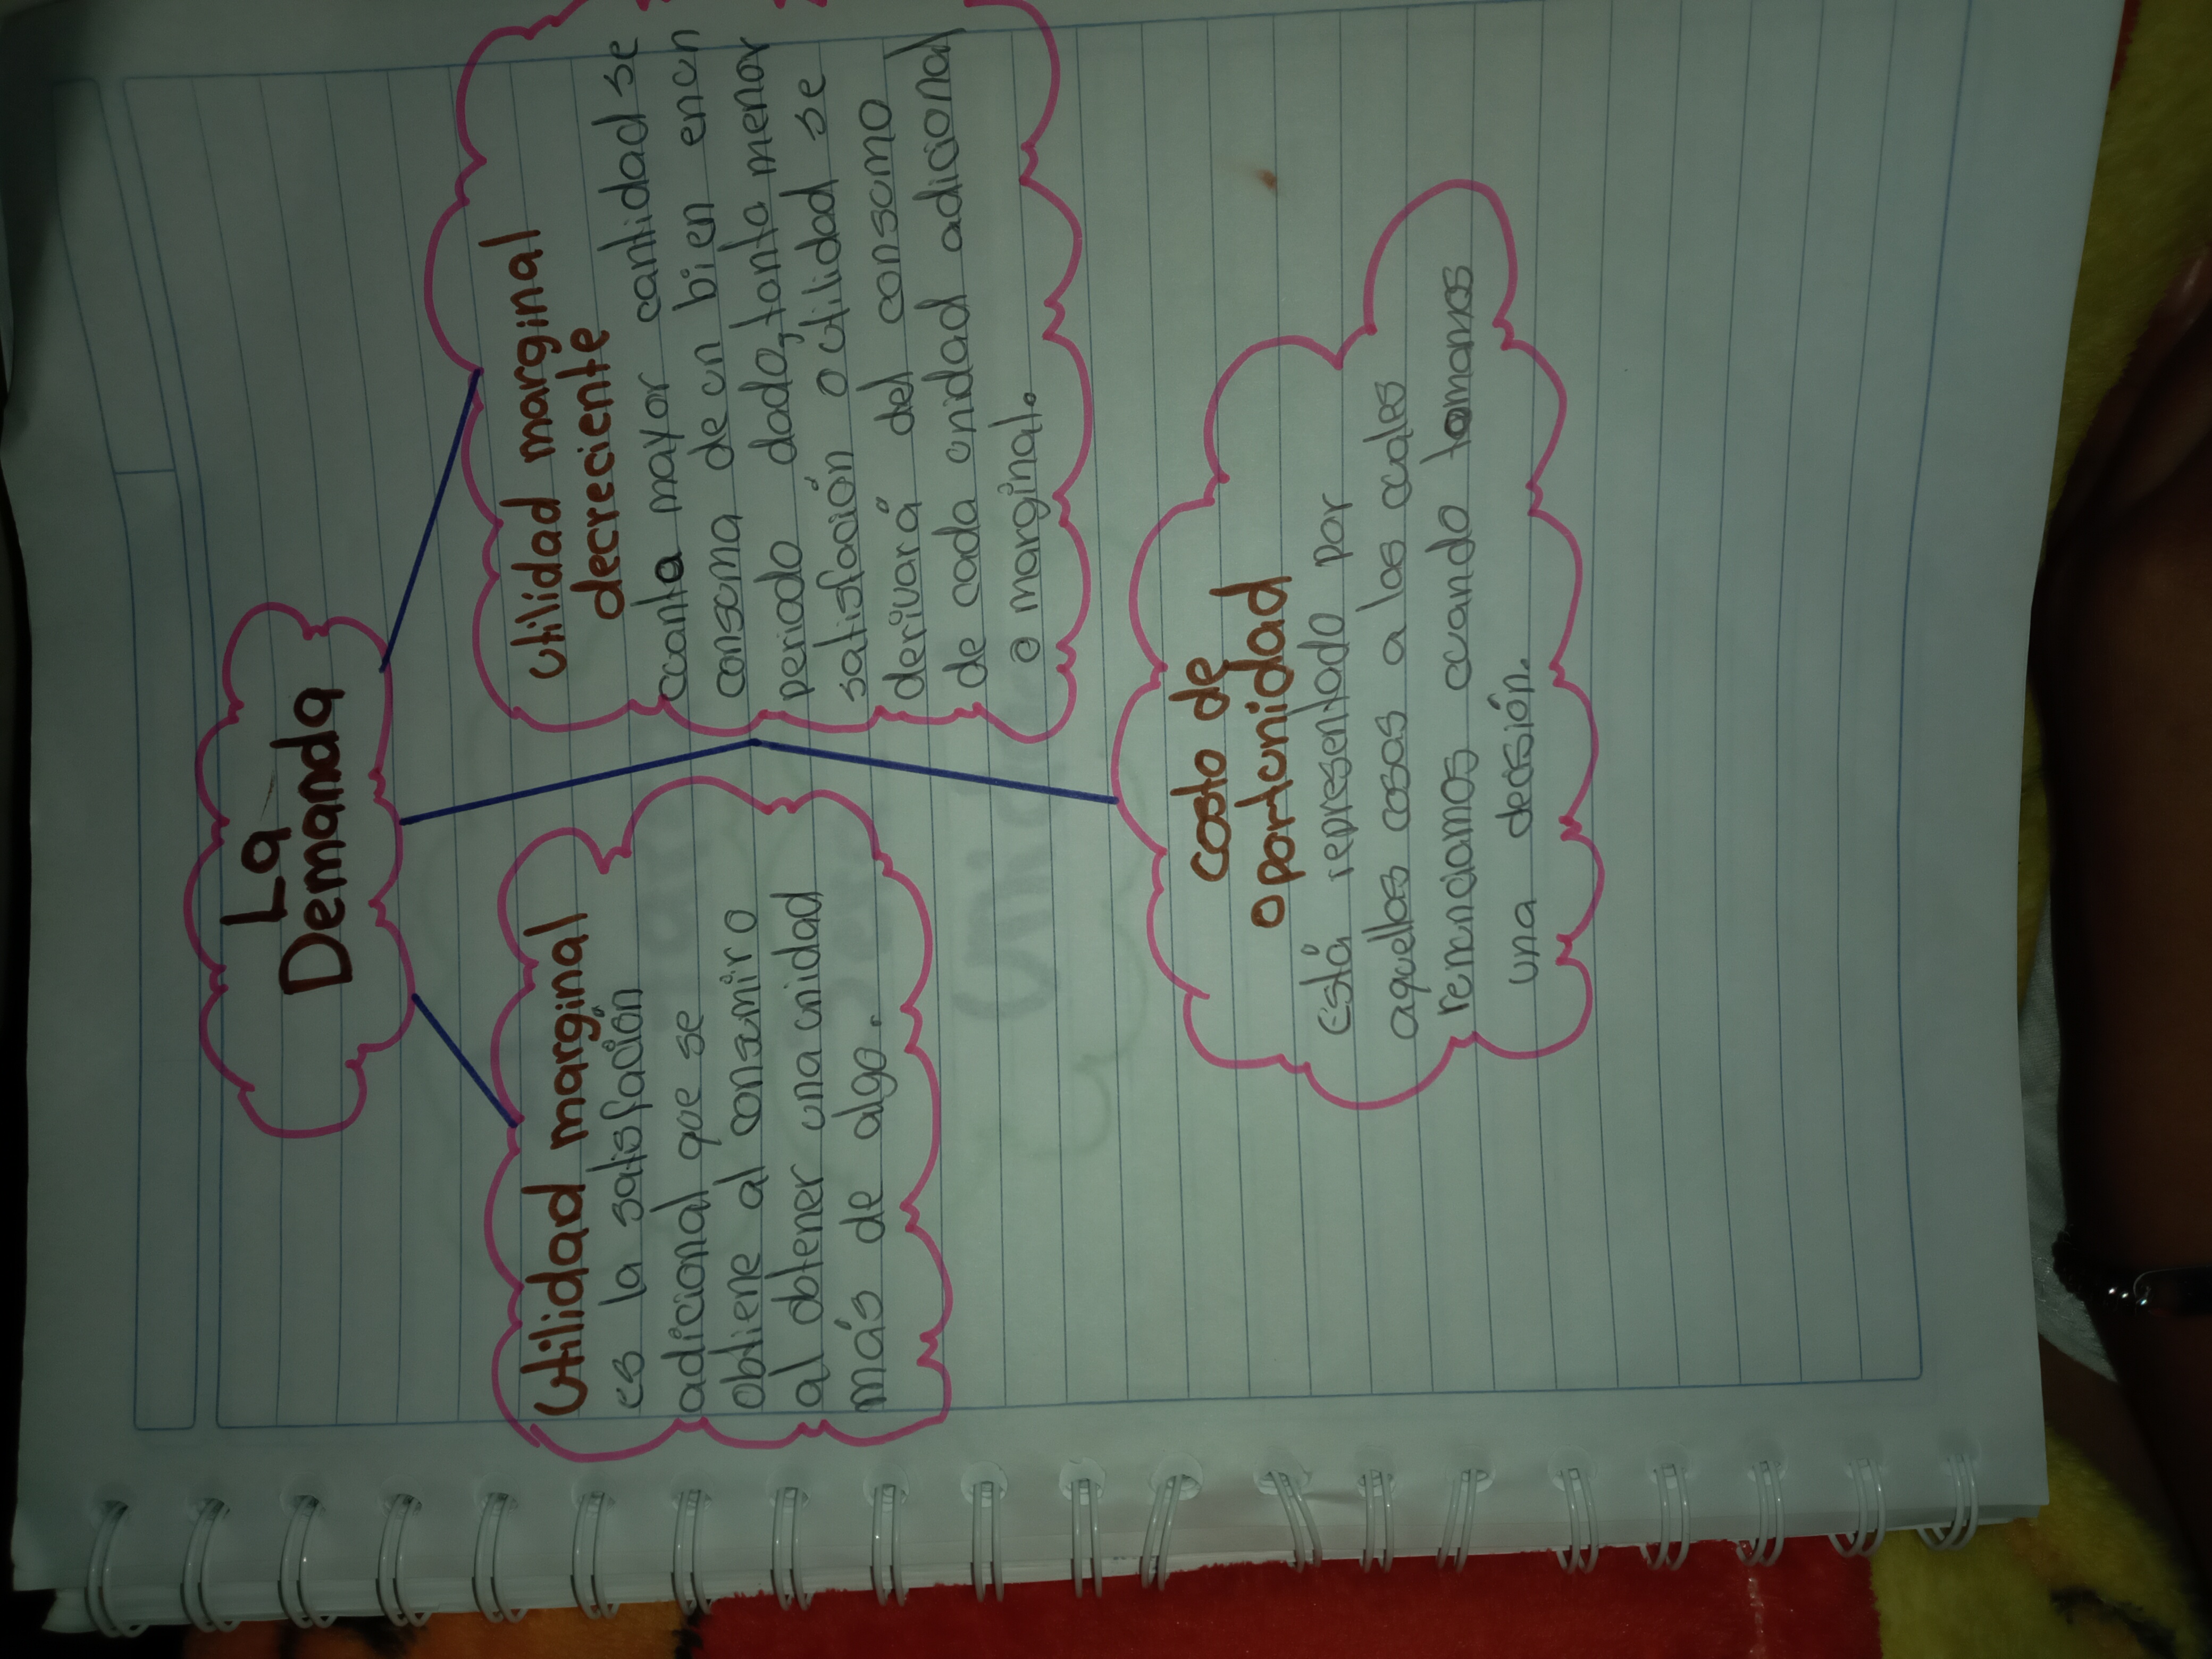 La
Demanda
Utilidad marginal
es la satisfación
adicional que se
obtiene al consumir o
al obtener una unidad
más de algo.
Utilidad marginal
decreciente
cuanta mayor cantidad se
consuma de un bien en un
periodo dado, tanta menor
satisfación o utilidad se
derivará del consumo
de cada unidad adicional
o marginal.
costo de
oportunidad
Está representado por
aquellas cosas a las cuales
renunciamos cuando tomamos
una decisión.